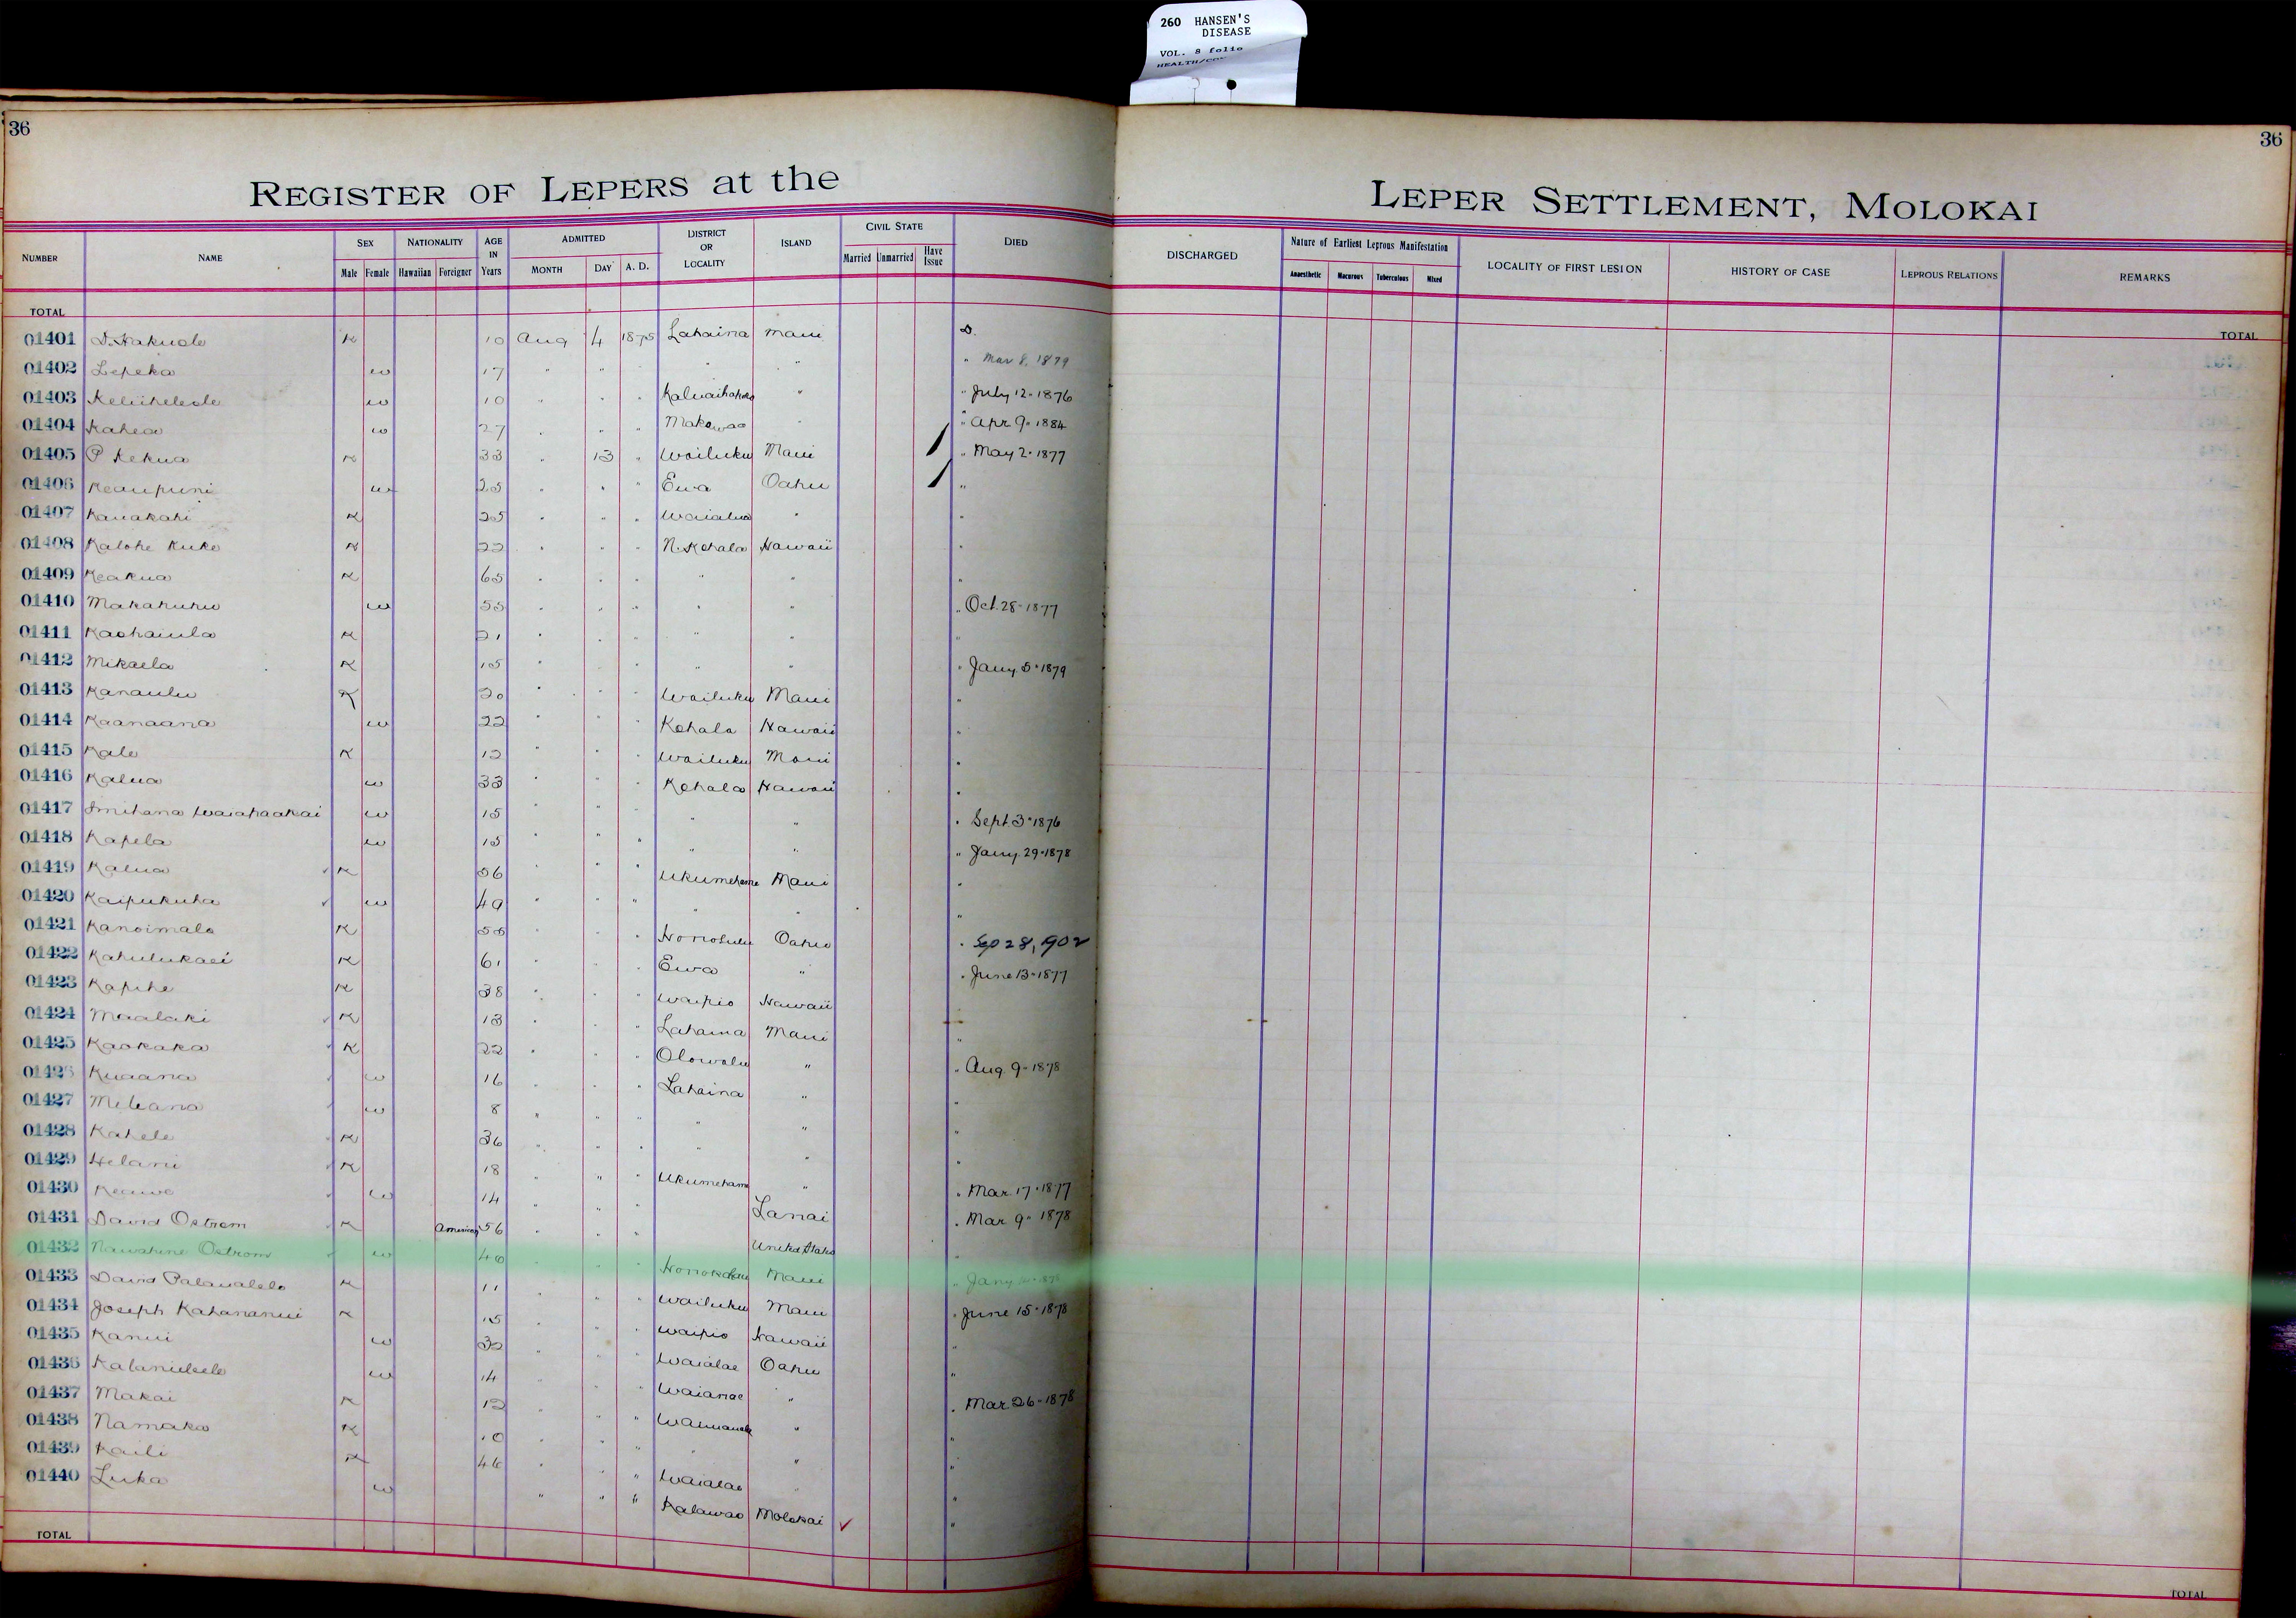 260 HANSEN'S
DISEASE
VOL. 8 folio
36
36
REGISTER OF LEPERS at the
LEPER SETTLEMENT, MOLOKAI
NUMBER NAME SEX Male Female NATIONALITY Hawaiian Foreigner AGE IN Years ADMITTED MONTH DAY A. D. DISTRICT OR LOCALITY ISLAND CIVIL STATE Married Unmarried Have Issue DIED
DISCHARGED Nature of Earliest Leprous Manifestation Anaesthetic Macurous Tuberculous Mixed LOCALITY OF FIRST LESION HISTORY OF CASE LEPROUS RELATIONS REMARKS
TOTAL
TOTAL
01401 D. Hakuole K 10 Aug 4 1875 Lahaina Maui D.
01402 Lepeka w 17 " " " " " " Mar 8, 1879
01403 w 10 " " " " " July 12-1876
01404 Kahea w 27 " " " Makawao " " Apr 9-1884
01405 P Kekua K 33 " 13 " Wailuku Maui / " May 2-1877
01406 Keaupuni w 25 " " " Ewa Oahu / "
01407 Kauakahi K 25 " " " Waialua " "
01408 Kalohe Kuke K 22 " " " N. Kohala Hawaii "
01409 Keakua K 65 " " " " " "
01410 Makahuhu w 55 " " " " " " Oct. 28-1877
01411 Kaohaiula K 21 " " " " " "
01412 Mikaela K 15 " " " " " " Jany 5-1879
01413 Kanaulu K 20 " " " Wailuku Maui "
01414 Kaanaana w 22 " " " Kohala Hawaii "
01415 Kale K 12 " " " Wailuku Maui "
01416 Kalua w 33 " " " Kohala Hawaii "
01417 Waiahaakai w 15 " " " " " " Sept. 3-1876
01418 Kapela w 15 " " " " " " Jany. 29-1878
01419 Kalua K 56 " " " Ukumehame Maui "
01420 Kaipukuha w 49 " " " " " "
01421 Kanoimalo K " " " Honolulu Oahu " Sep 28, 1902
01422 Kahulukaei K 61 " " " Ewa " " June 13-1877
01423 Kapihe K 38 " " " Waipio Hawaii
01424 Maalaki K 13 " " " Lahaina Maui "
01425 Kaokaka K 22 " " " Olowalu " " Aug. 9-1878
01426 Kuaana w 16 " " " Lahaina " "
01427 Meleana w 8 " " " " " "
01428 Kahele K 36 " " " " " "
01429 Helani K 18 " " " Ukumehame " " Mar. 17-1877
01430 Keawe w 14 " " " Lanai " Mar. 9-1878
01431 David Ostrom K American 56 " " " United States "
01432 Nawahine Ostrom w " " " Honokohau Maui " Jany
01433 David Palaualelo K 11 " " " Wailuku Maui " June 15-1878
01434 Joseph Kahananui K 15 " " " Waipio Hawaii "
01435 Kanui w 32 " " " Waialae Oahu "
01436 w 14 " " " Waianae " " Mar. 26-1878
01437 Makai K 12 " " " " "
01438 Namaka K 10 " " " " " "
01439 Kaili K 46 " " " Waialae " "
01440 Luka w " " " Kalawao Molokai ✓ "
TOTAL
TOTAL